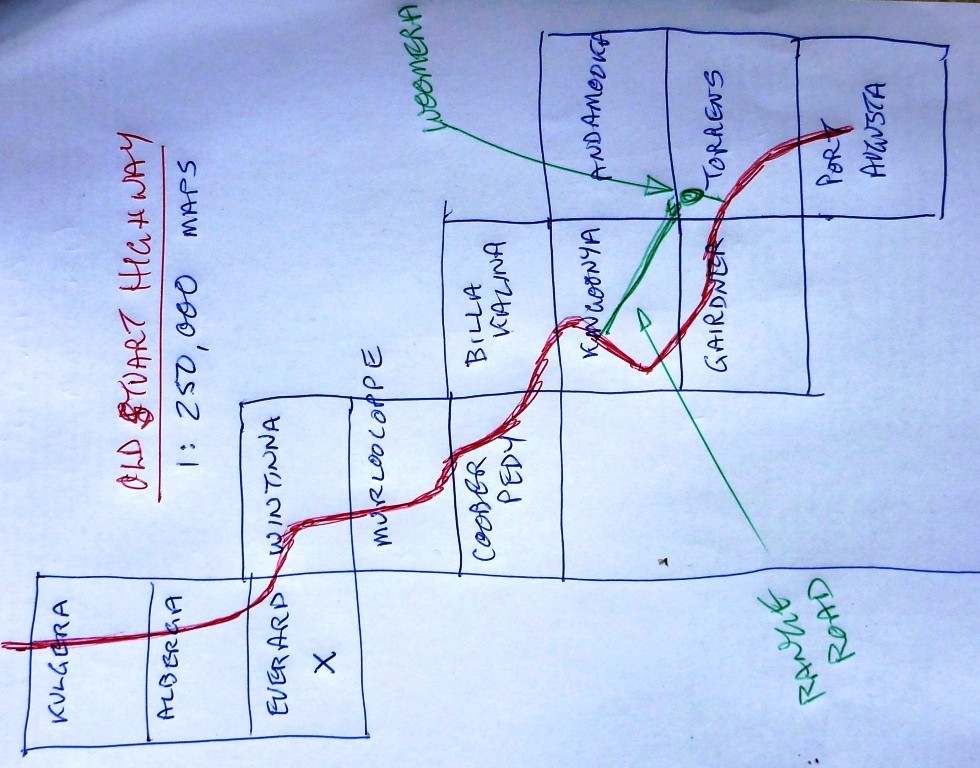 OLD STUART HIGHWAY
1: 250,000 MAPS
KULGERA
ALBERGA
EVERARD
X
WINTINNA
MURLOOCOPPE
COOBER
PEDY
BILLA
KALINA
KINGOONYA
GAIRDNER
ANDAMOOKA
TORRENS
PORT
AUGUSTA
WOOMERA
RANGE
ROAD